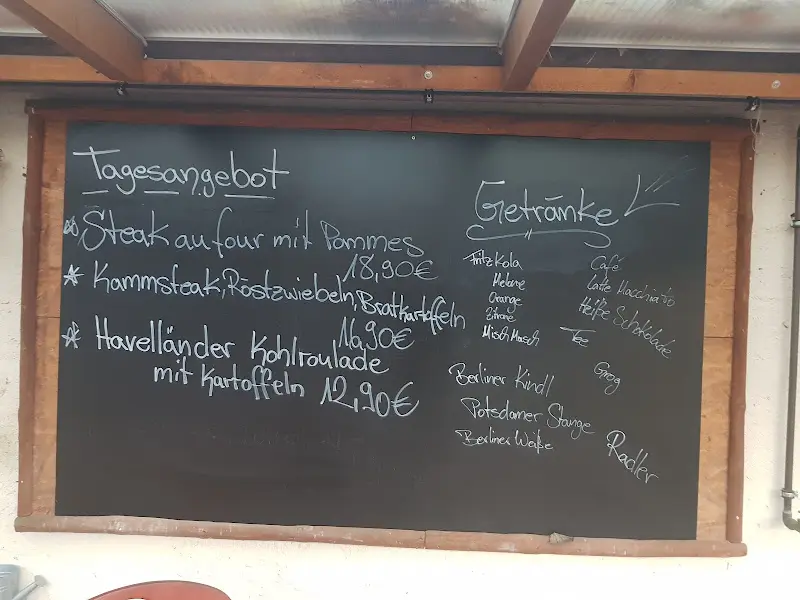 Tagesangebot
Steak au four mit Pommes
18,90€
* Kammsteak, Röstzwiebeln, Bratkartoffeln
16,90€
* Havelländer Kohlroulade
mit Kartoffeln 12,90€
Getränke
Fritz Kola
Melone
Orange
Zitrone
MischMasch
Berliner Kindl
Potsdamer Stange
Berliner Weiße
Café
Latte Macchiato
Heiße Schokolade
Tee
Grog
Radler